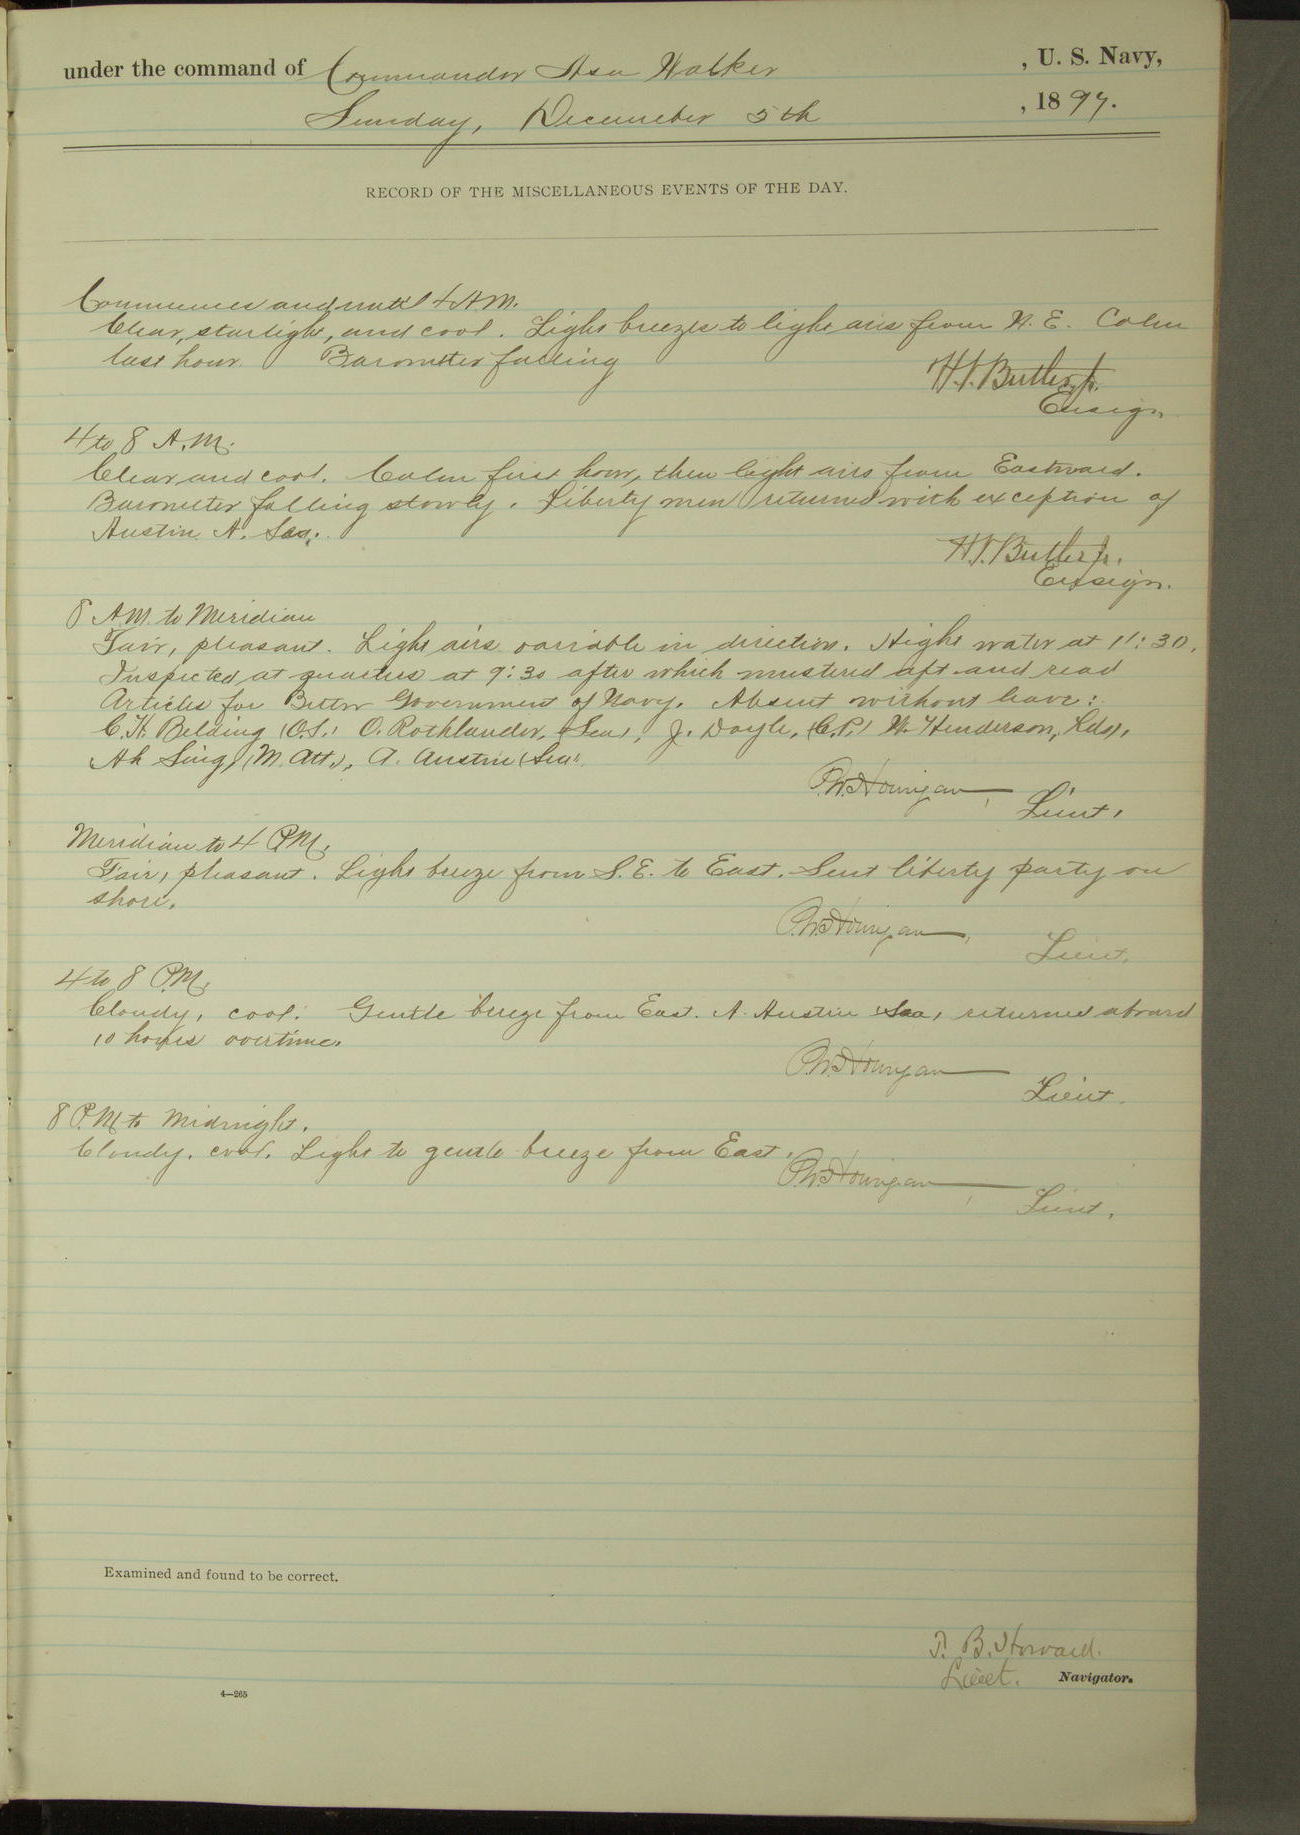 under the command of Commander Asa Walker , U. S. Navy,
Sunday, December 5th , 1897.
RECORD OF THE MISCELLANEOUS EVENTS OF THE DAY.
Commences and until 4 A.M.
Clear, starlight, and cool. Light breezes to light airs from N. E. Calm
last hour. Barometer falling
H.V. Butler, Jr.
Ensign
4 to 8 A.M.
Clear and cool. Calm first hour, then light airs from Eastward.
Barometer falling slowly. Liberty men returned with exception of
Austin A. Sea.
H.V. Butler Jr.
Ensign.
8 A.M. to Meridian
Fair, pleasant. Light airs variable in direction. Hight water at 11:30.
Inspected at quarters at 9:30 after which mustered aft and read
Articles for Better Government of Navy. Absent without leave:
C.H. Belding (O.S.) O. Rothlander, (Sea), J. Doyle, (C.P.) W. Henderson, Lds,
Ah Sing, (M. Att.), A. Austin (Sea).
P.W. Hourigan, Lieut.
Meridian to 4 P.M.
Fair, pleasant. Light breeze from S.E. to East. Sent liberty party on
shore.
P.W. Hourigan, Lieut.
4 to 8 P.M.
Cloudy, cool. Gentle breeze from East. A. Austin Sea, returned aboard
10 hours overtime.
P.W. Hourigan
Lieut.
8 P.M. to Midnight.
Cloudy, cool. Light to gentle breeze from East.
P.W. Hourigan, Lieut.
Examined and found to be correct.
T. B. Howard.
Lieut. Navigator.
4—265